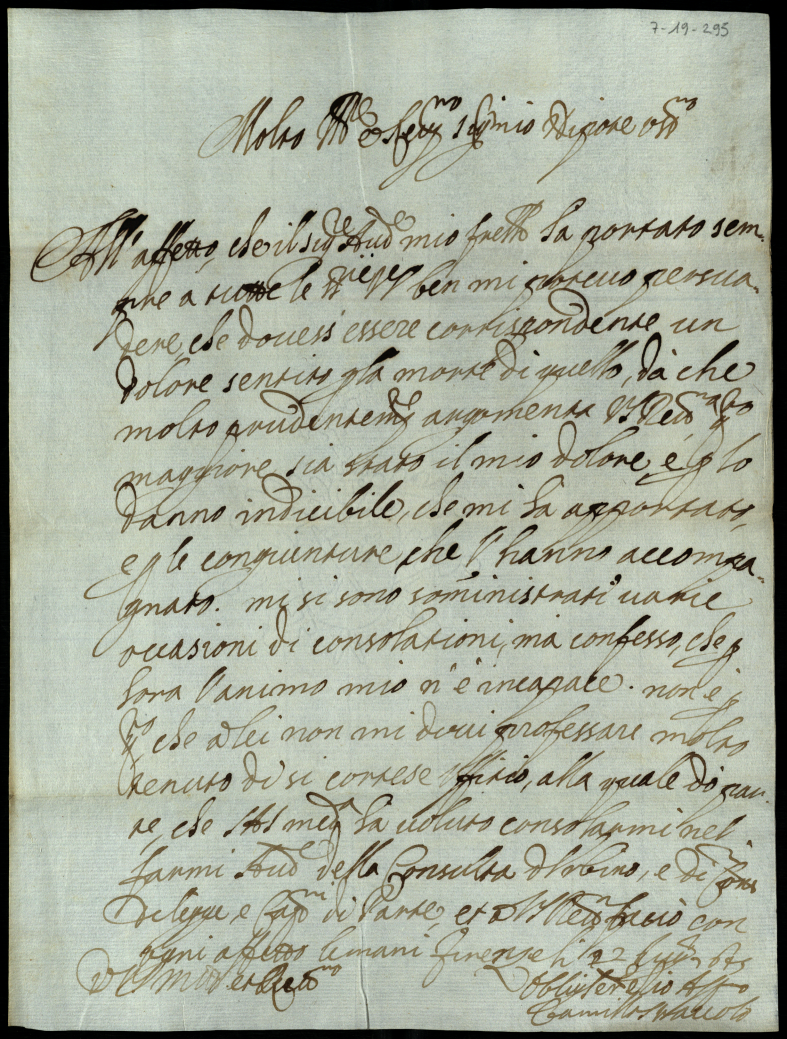 7-19-295
Molto Ill.re e Rev. Sig. mio Padrone oss.mo
All'affetto, che il Sig.re Aud.re mio frello ha portato sem-
pre a tutte le ben mi potevo persua-
dere, che dovess' essere corrispondente un
dolore sentito p la morte di quello, dà che
molto prudentem.te argomenta VS Rev.ma q.to
maggiore sia stato il mio dolore, é p lo
danno indicibile, che mi ha apportato,
e p le congiunture che l'hanno accompa-
gnato. mi si sono somministrati varie
occasioni di consolationi, ma confesso, che p
hora l'animo mio n' é incapace. non é p
q.to che a lei non mi devi professare molto
tenuto di si cortese offitio, alla quale dò par-
te, che SAS med.a ha voluto consolarmi nel
farmi Aud.re della Consulta d'Urbino, e di
di legge e Cap.ni di Parte, et a VS Rev.ma bacio con
ogni affetto le mani Firenze li 22
Di VS molto Ill.re et Rev.ma
Camillo